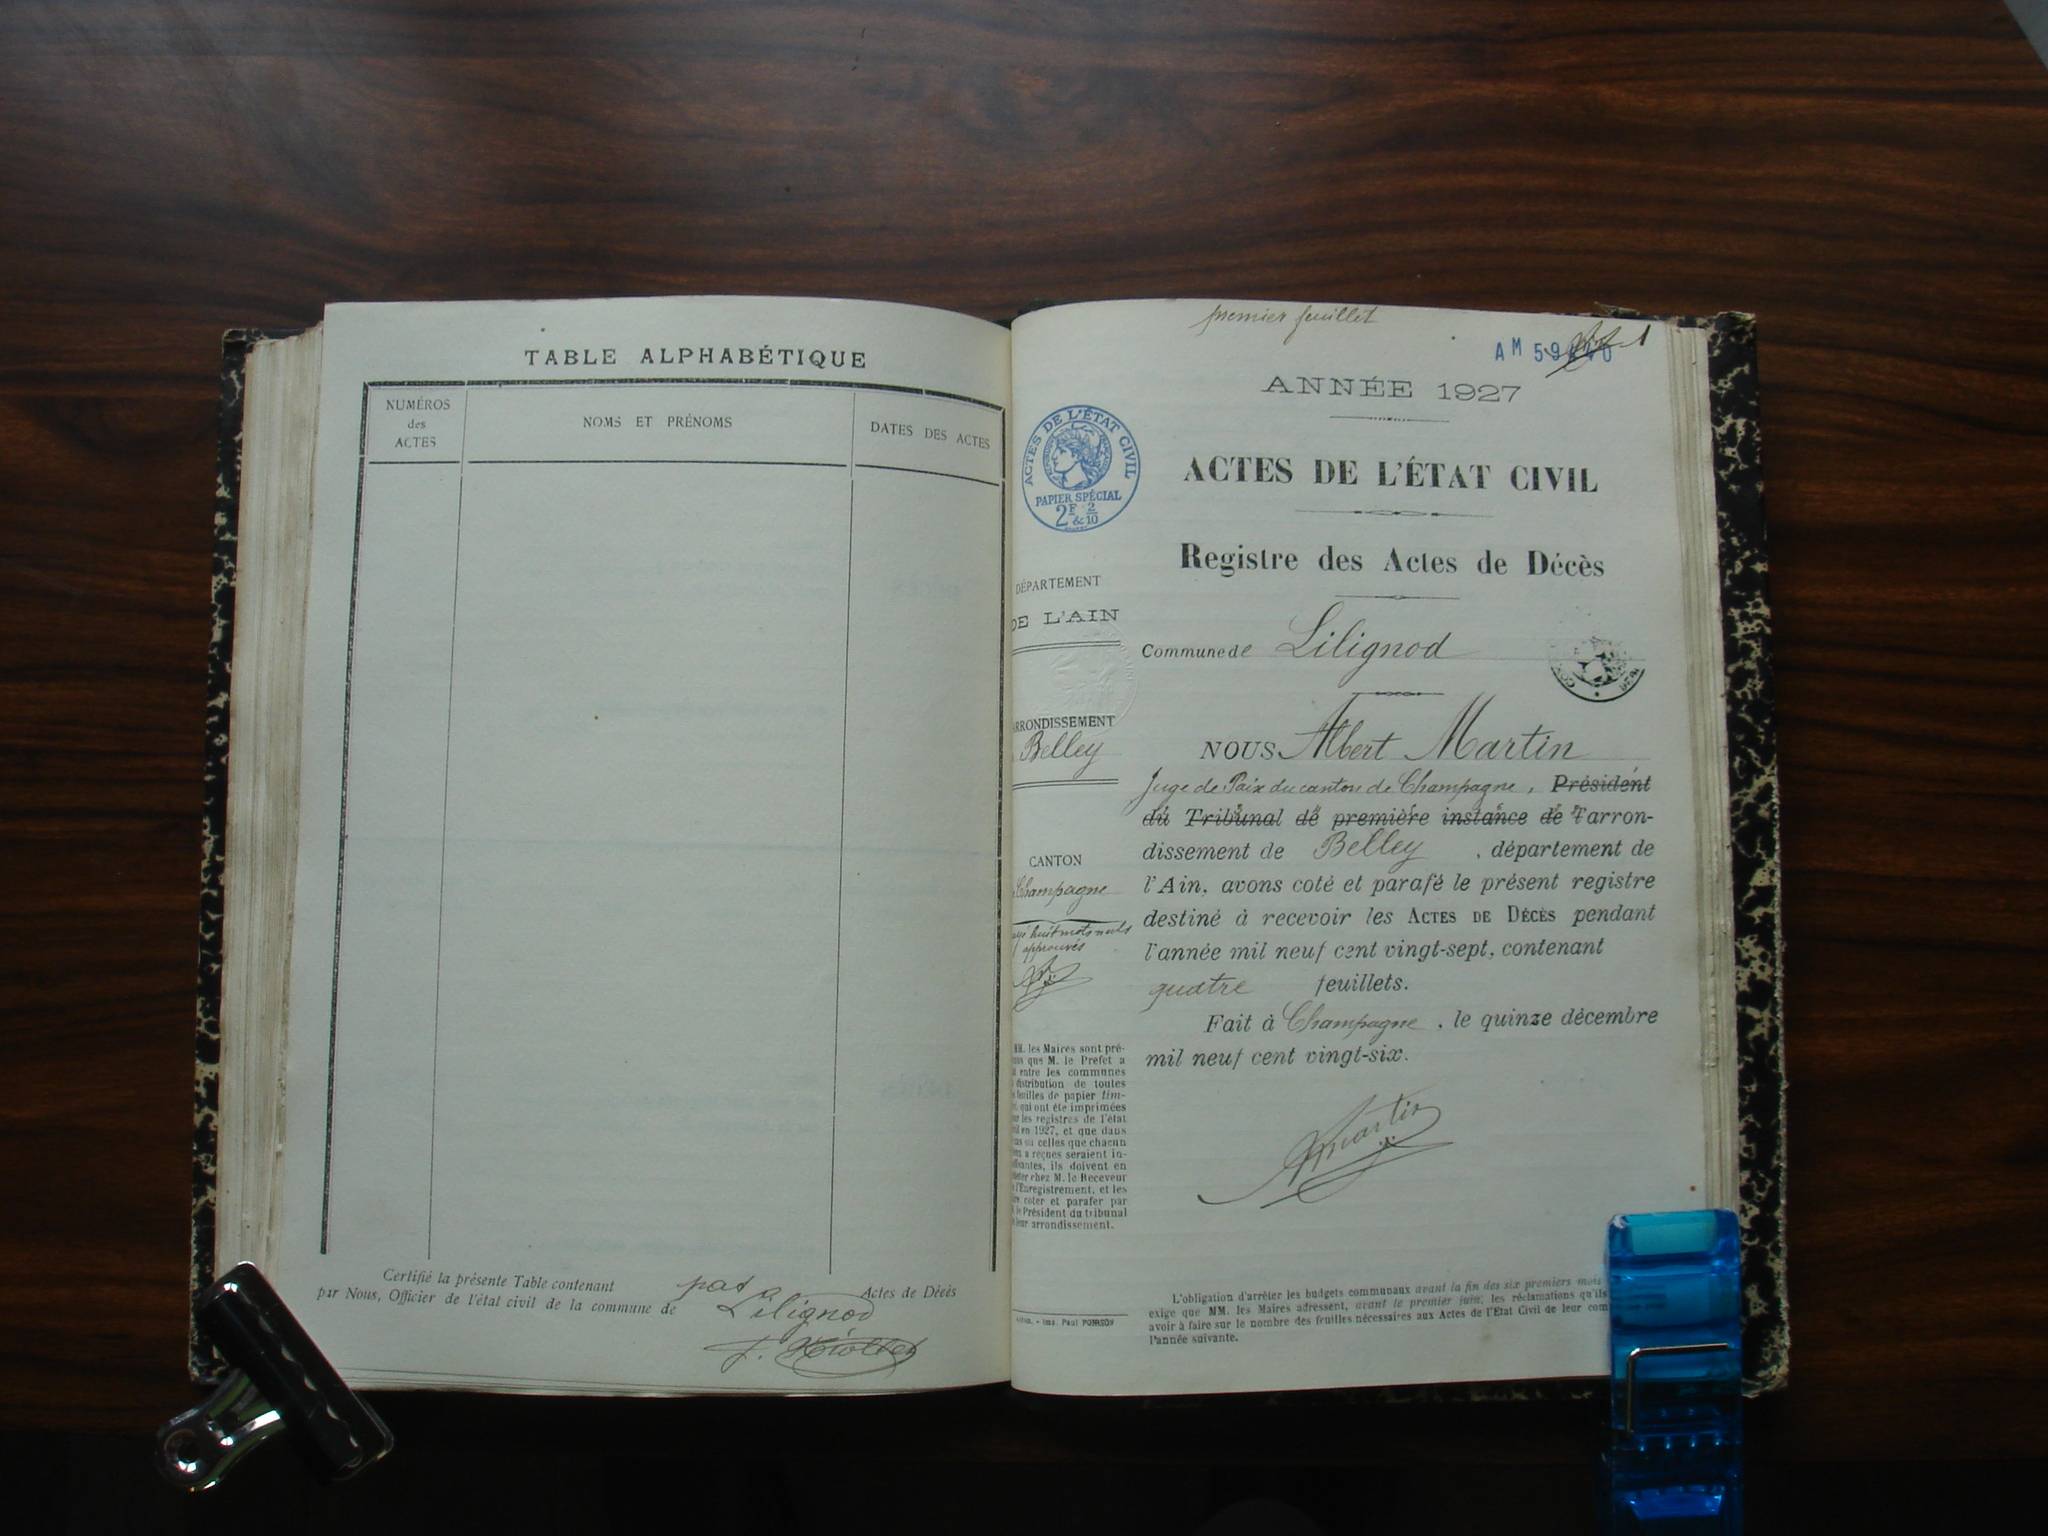 TABLE ALPHABÉTIQUE
NUMÉROS
des
ACTES
NOMS ET PRÉNOMS
DATES DES ACTES
Certifié la présente Table contenant pas Actes de Décès
par Nous, Officier de l'état civil de la commune de Lilignod
premier feuillet
AM 59
1
ANNÉE 1927
ACTES DE L'ÉTAT CIVIL
PAPIER SPÉCIAL
2F & 2/10
ACTES DE L'ÉTAT CIVIL
Registre des Actes de Décès
DÉPARTEMENT
DE L'AIN
Commune de Lilignod
ARRONDISSEMENT
Belley
CANTON
Champagne
huit mots nuls
approuvés
MM. les Maires sont pré-
que M. le Prefet a
entre les communes
distribution de toutes
feuilles de papier tim-
qui ont été imprimées
les registres de l'état
en 1927, et que dans
où celles que chacun
a reçues seraient in-
ils doivent en
chez M. le Receveur
l'Enregistrement, et les
coter et parafer par
le Président du tribunal
leur arrondissement.
Imp. Paul
NOUS Albert Martin
Juge de Paix du canton de Champagne, Président
du Tribunal de première instance de l'arron-
dissement de Belley, département de
l'Ain, avons coté et parafé le présent registre
destiné à recevoir les ACTES DE DÉCÈS pendant
l'année mil neuf cent vingt-sept, contenant
quatre feuillets.
Fait à Champagne, le quinze décembre
mil neuf cent vingt-six.
Martin
L'obligation d'arrêter les budgets communaux avant la fin des six premiers mois
exige que MM. les Maires adressent, avant le premier juin, les réclamations qu'ils
avoir à faire sur le nombre des feuilles nécessaires aux Actes de l'État Civil de leur com
l'année suivante.